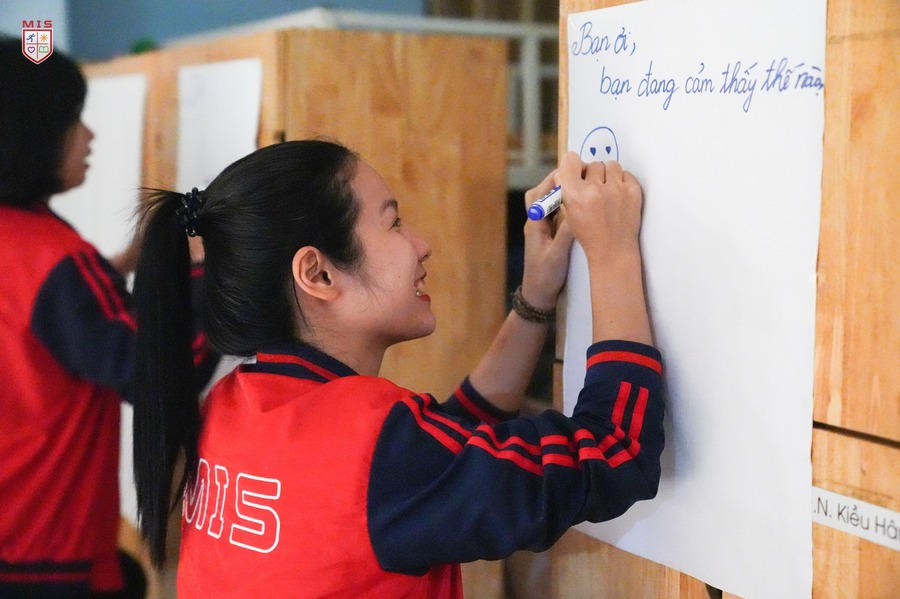 MIS
Bạn ơi,
bạn đang cảm thấy thế nào,
MIS
.N. Kiều Hân